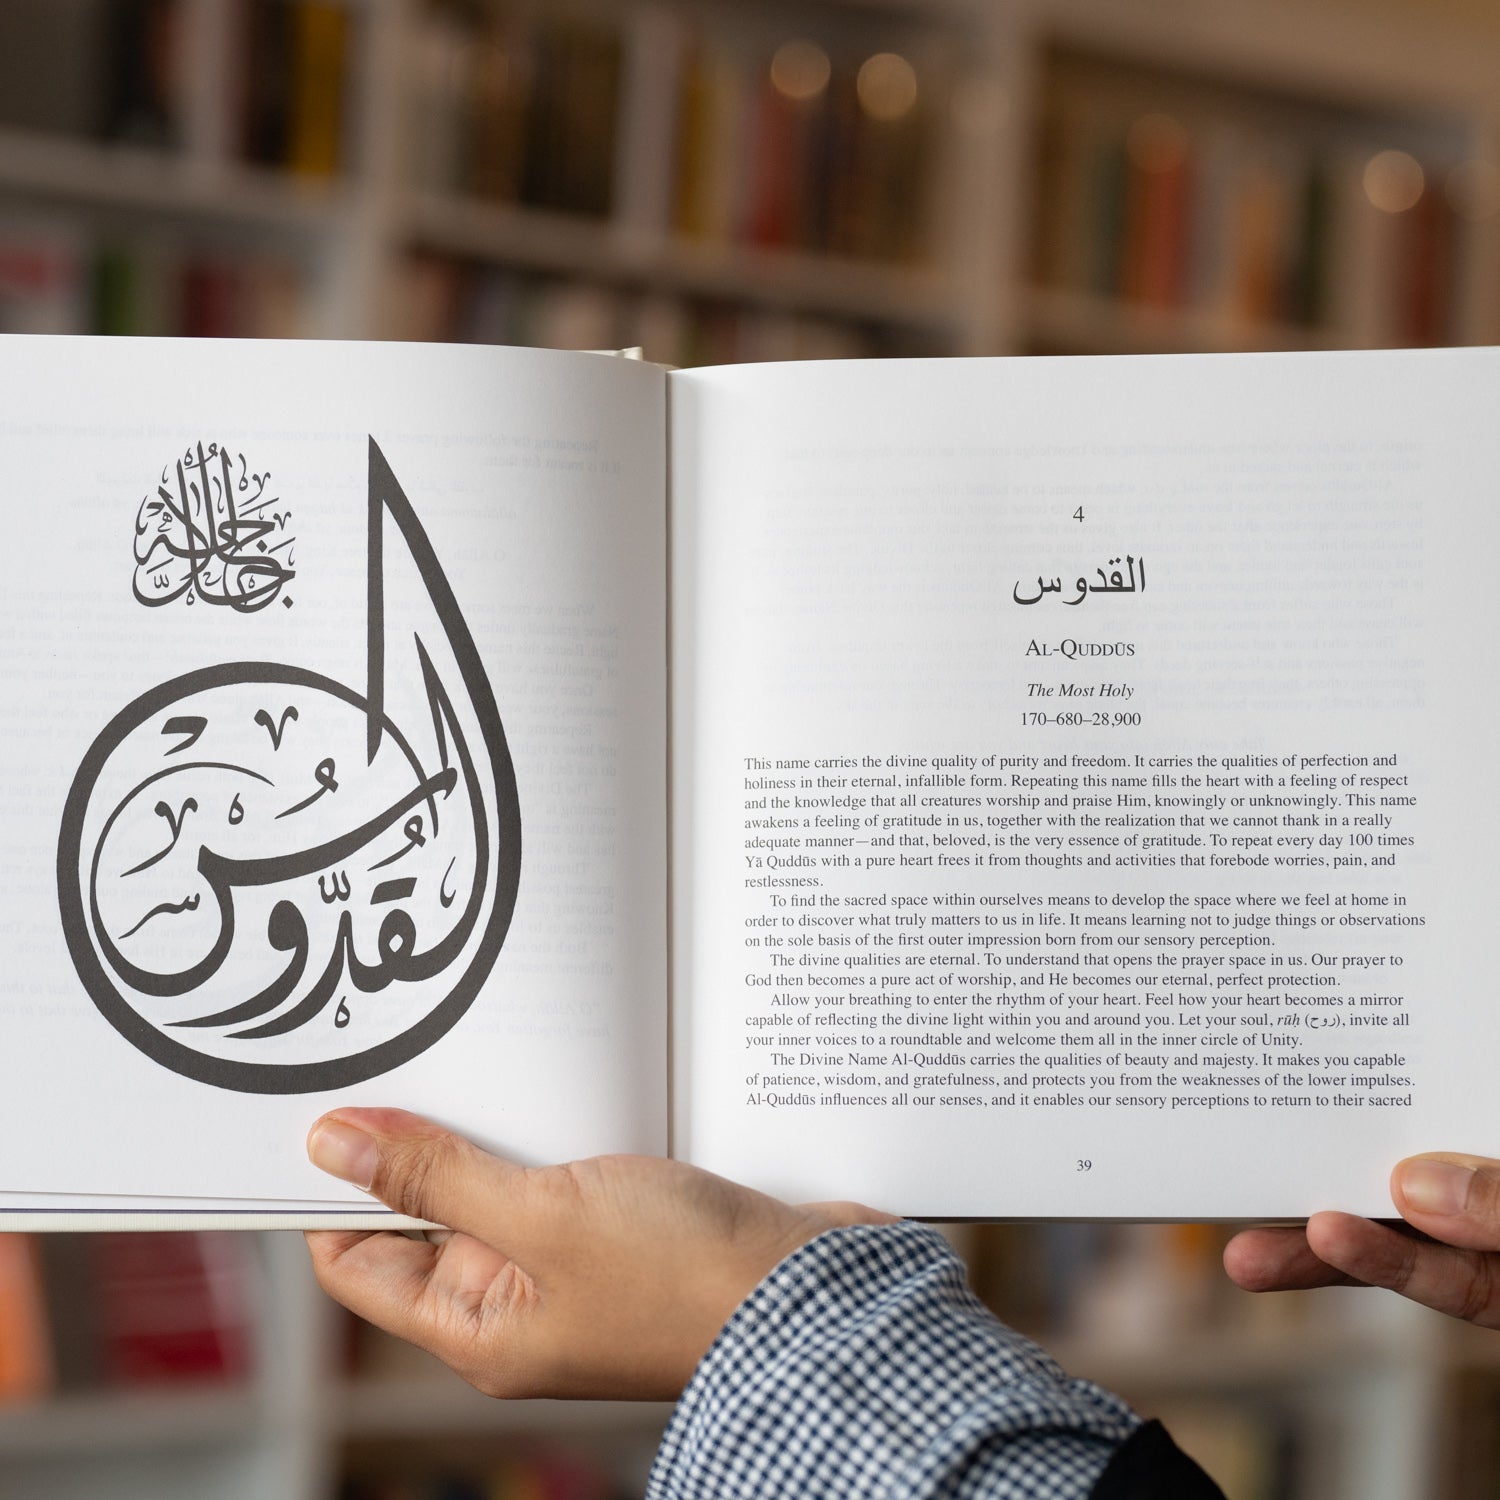 جل جلاله
القدوس
4
القدوس
AL-QUDDŪS
The Most Holy
170–680–28,900
This name carries the divine quality of purity and freedom. It carries the qualities of perfection and
holiness in their eternal, infallible form. Repeating this name fills the heart with a feeling of respect
and the knowledge that all creatures worship and praise Him, knowingly or unknowingly. This name
awakens a feeling of gratitude in us, together with the realization that we cannot thank in a really
adequate manner—and that, beloved, is the very essence of gratitude. To repeat every day 100 times
Yā Quddūs with a pure heart frees it from thoughts and activities that forebode worries, pain, and
restlessness.
To find the sacred space within ourselves means to develop the space where we feel at home in
order to discover what truly matters to us in life. It means learning not to judge things or observations
on the sole basis of the first outer impression born from our sensory perception.
The divine qualities are eternal. To understand that opens the prayer space in us. Our prayer to
God then becomes a pure act of worship, and He becomes our eternal, perfect protection.
Allow your breathing to enter the rhythm of your heart. Feel how your heart becomes a mirror
capable of reflecting the divine light within you and around you. Let your soul, rūḥ (روح), invite all
your inner voices to a roundtable and welcome them all in the inner circle of Unity.
The Divine Name Al-Quddūs carries the qualities of beauty and majesty. It makes you capable
of patience, wisdom, and gratefulness, and protects you from the weaknesses of the lower impulses.
Al-Quddūs influences all our senses, and it enables our sensory perceptions to return to their sacred
39